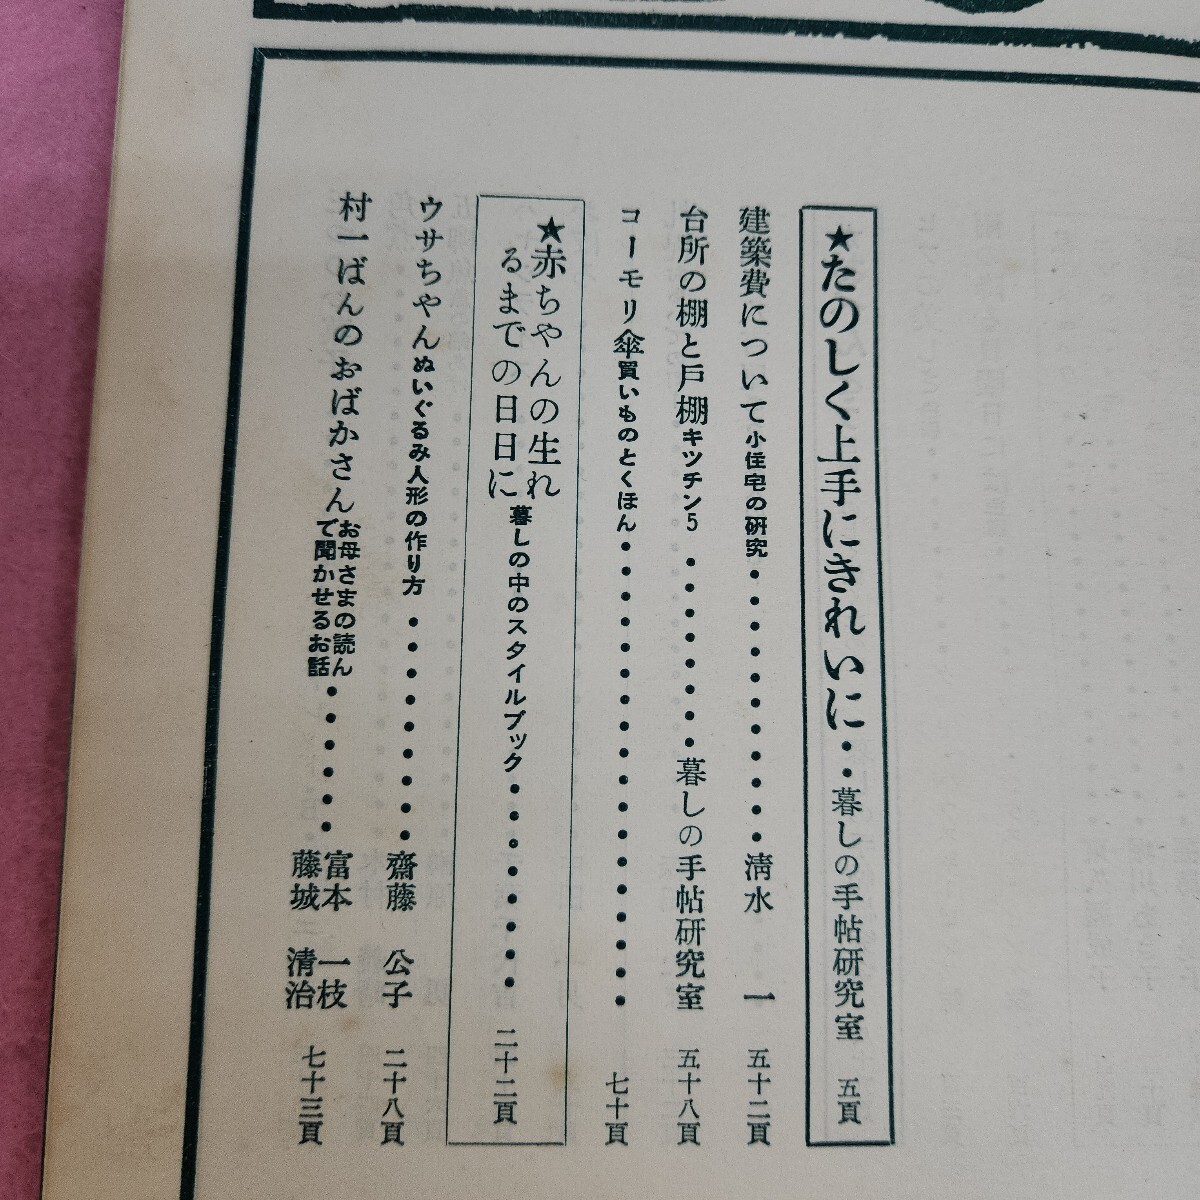 ★たのしく上手にきれいに・・暮しの手帖研究室 五頁
建築費について小住宅の研究・・・・・・・・・・・清水 一 五十二頁
台所の棚と戸棚キツチン5・・・・・・・・暮しの手帖研究室 五十八頁
コーモリ傘買いものとくほん・・・・・・・・・・・・・・・・・・七十頁
★赤ちやんの生れ
るまでの日日に暮しの中のスタイルブック・・・・・・・・二十二頁
ウサちやんぬいぐるみ人形の作り方・・・・・・・・・齋藤 公子 二十八頁
村一ばんのおばかさんお母さまの読ん
で聞かせるお話・・・・・・富本 一枝
藤城 清治 七十三頁